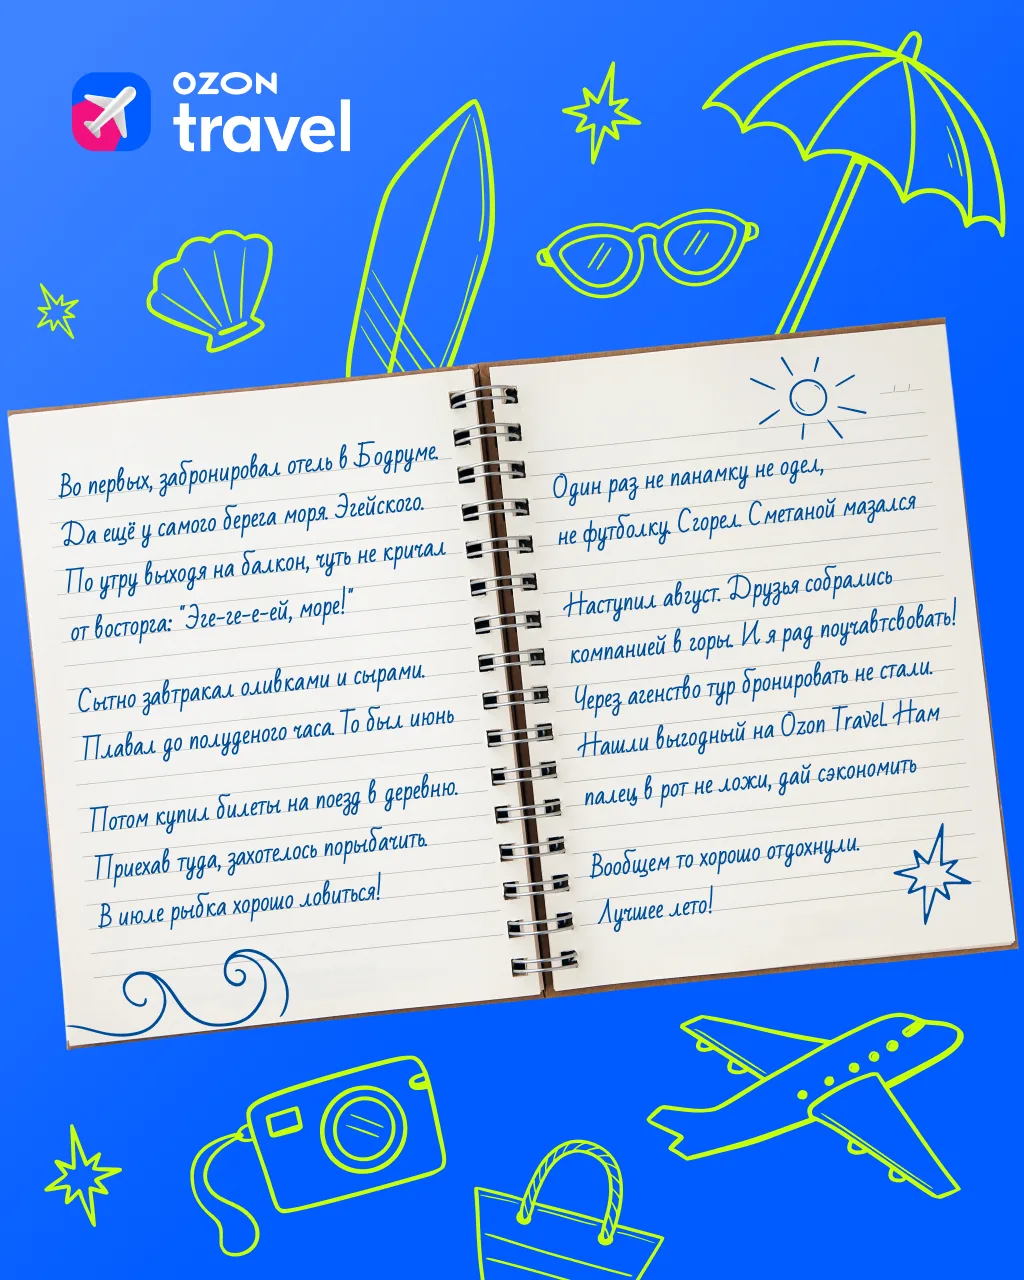 OZON
travel
Во первых, забронировал отель в Бодруме.
Да ещё у самого берега моря. Эгейского.
По утру выходя на балкон, чуть не кричал
от восторга: "Эге-ге-е-ей, море!"
Сытно завтракал оливками и сырами.
Плавал до полуденого часа. То был июнь
Потом купил билеты на поезд в деревню.
Приехав туда, захотелось порыбачить.
В июле рыбка хорошо ловиться!
Один раз не панамку не одел,
не футболку. Сгорел. Сметаной мазался
Наступил август. Друзья собрались
компанией в горы. И я рад поучавтсвовать!
Через агенство тур бронировать не стали.
Нашли выгодный на Ozon Travel. Нам
палец в рот не ложи, дай сэкономить
Вообщем то хорошо отдохнули.
Лучшее лето!